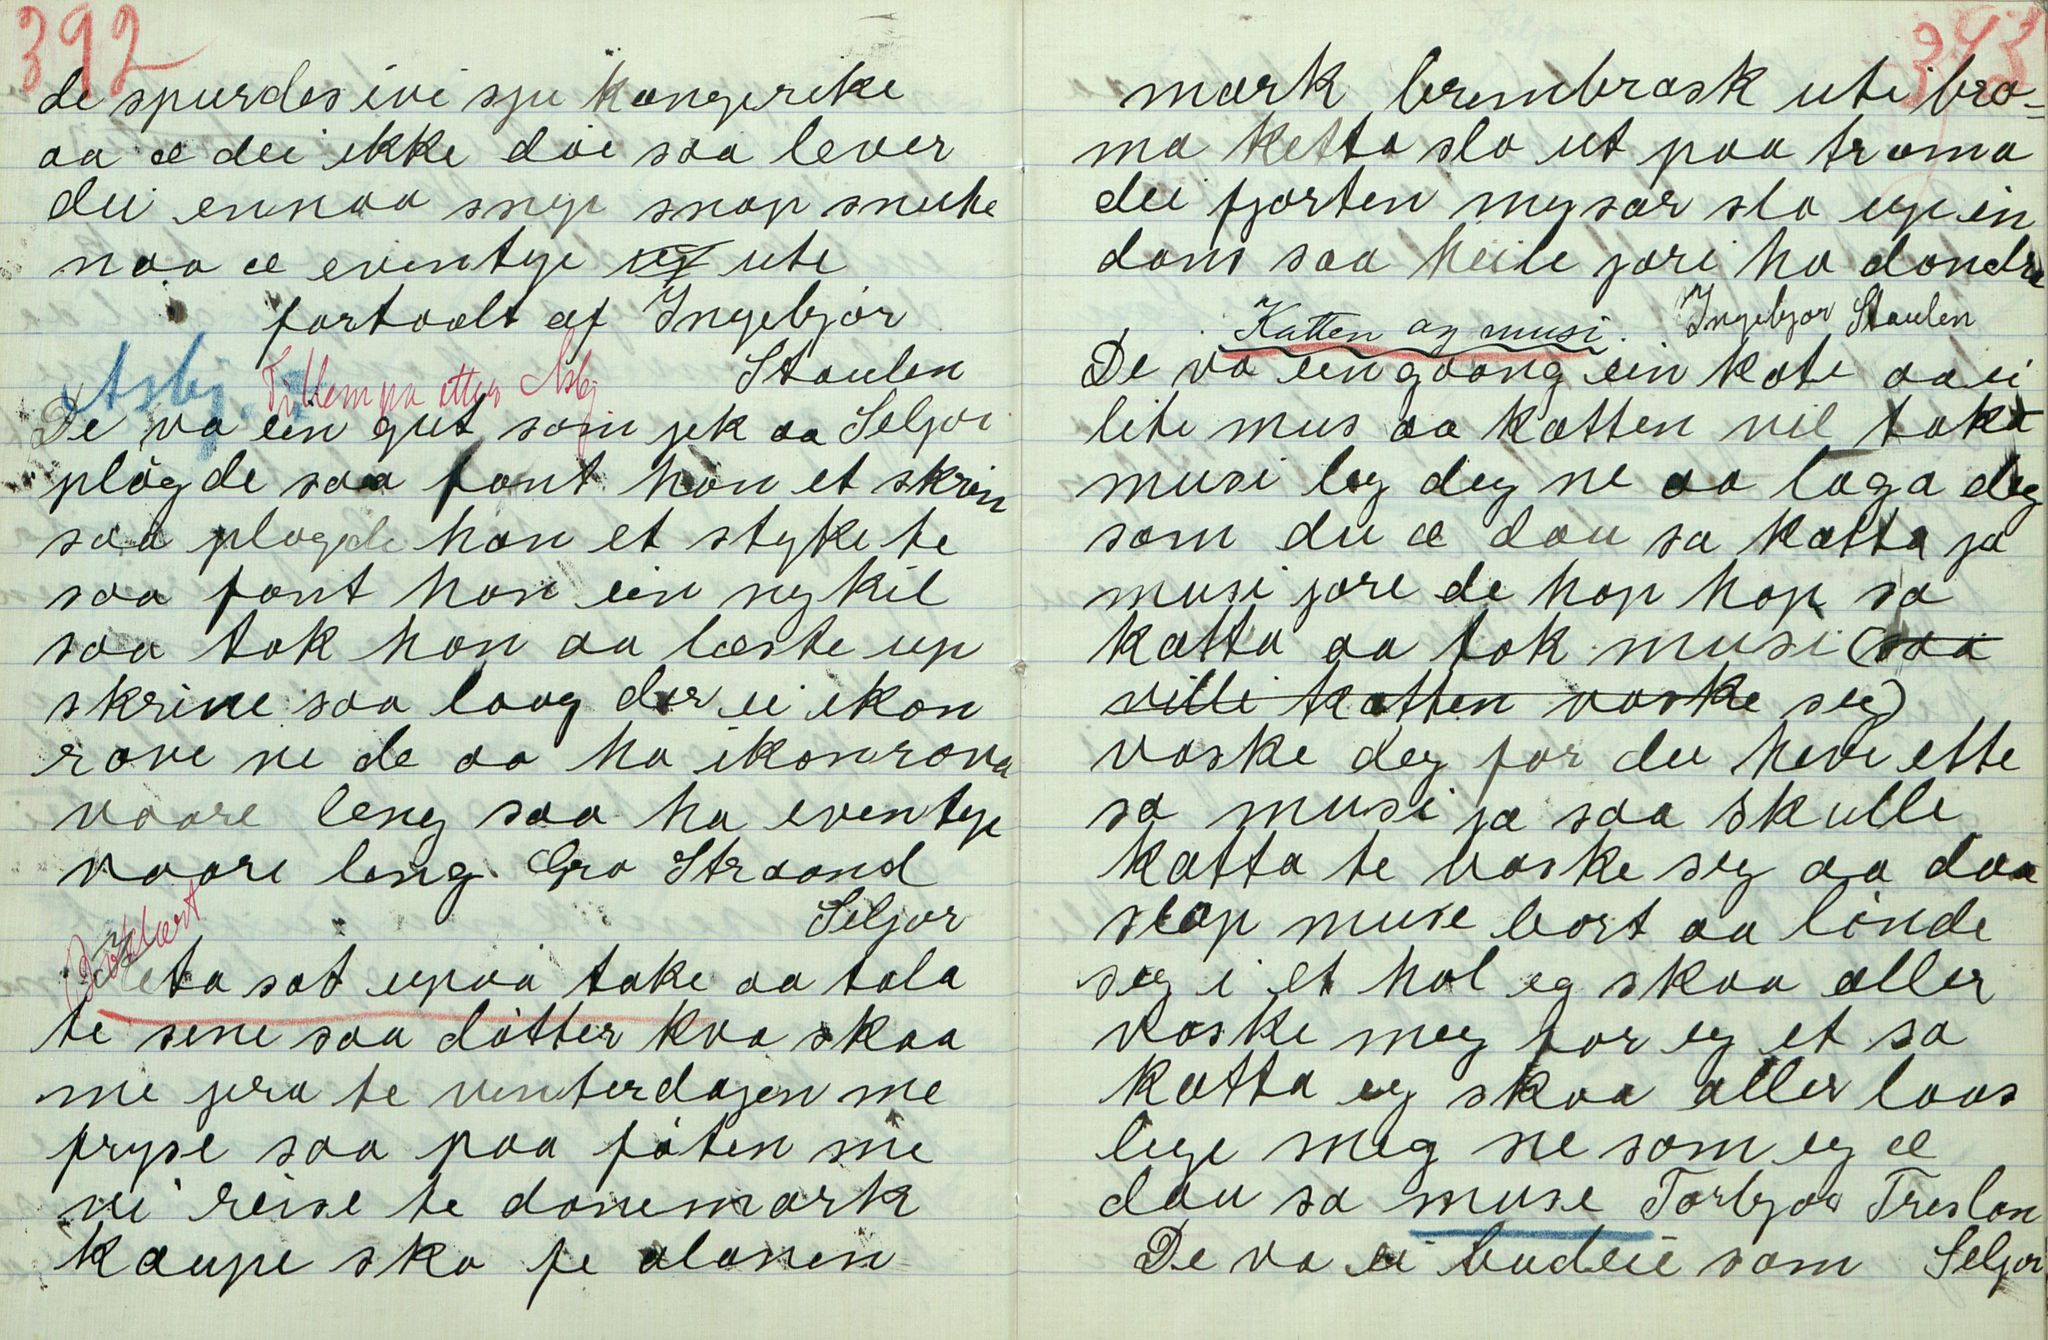 392
de spurdes ivi sju kongerike
aa æ dei ikke döie saa lever
dei ennaa snip snap snute
naa æ eventye ute
fortoolt af Ingebjör
Staulen
Asbj.
De va ein gut som jek aa Seljor
plögde saa fant han et skrin
saa plogde han et styke te
saa fant han ein nykil
saa tok han aa læste up
skrine saa laag der ei ikon
rove ne de aa ha ikonrova
vaare leng saa ha eventye
vaare leng. Gro Straand
Seljor
Keta sat upaa take aa tala
te sine saa dötter kva skaa
me jera te vinterdajen me
fryse saa paa föten me
vi reise te danemark
kaupe sko fe alanen
393
mark brembrask uti bra-
ma ketta slo ut paa trama
dei fjorten mysar slo up ein
dans saa heile jori ha dondra
Ingebjor Staulen
Katten og musi.
De va ein goong ein kate aa ei
lite mus aa katten vil taka
musi leg deg ne aa laga deg
som du æ dau sa katta ja
musi jore de hop hop sa
katta aa tok musi (saa
ville katten vaske seg)
vaske deg for du heve ette
sa musi ja saa skulle
katta te vaske seg aa daa
slap muse bort aa lönde
seg i et hol eg skaa aller
vaske meg for eg et sa
katta eg skaa aller laas
lege meg ne som eg æ
dau sa muse Torbjor Treslan
De va ei budeie som Seljor